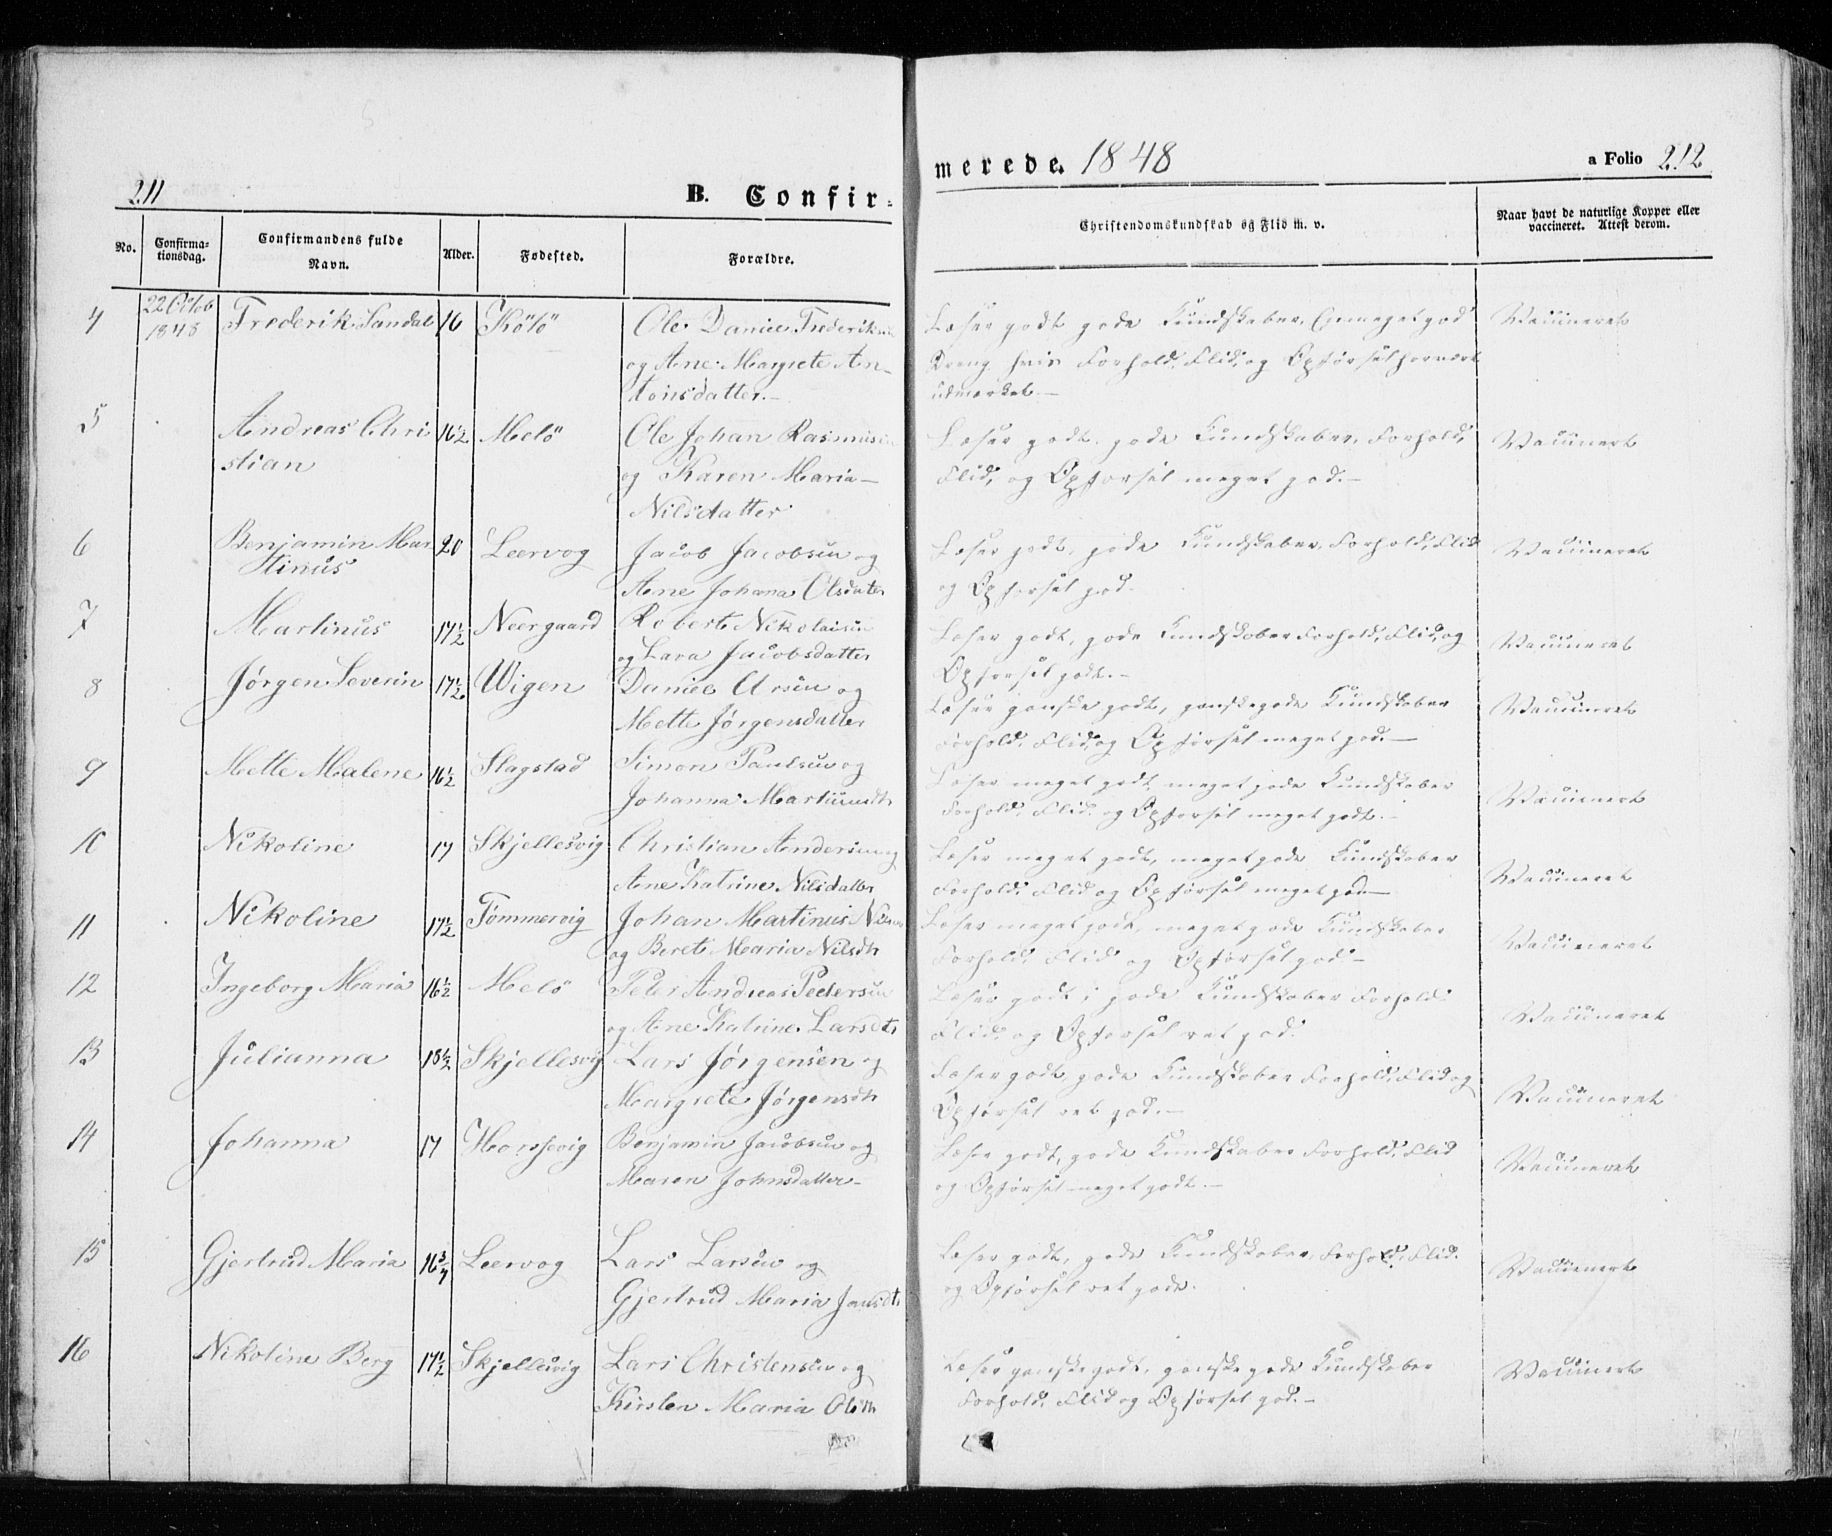 211
B. Confir-
No.
Confirma-
tionsdag.
Confirmandens fulde
Navn.
Alder.
Fødested.
Forældre.
4
22 Octob
1848
Frederik Sandal
16
Ole Daniel Frederiksen
og Ane Margrete An-
tonsdatter.-
5
Andreas Chri
stian
16½
Melö
Ole Johan Rasmusen
og Karen Maria
Nilsdatter
6
Benjamin Mar
tinus
20
Leervog
Jacob Jacobsen og
Ane Johana Olsdater
7
Martinus
17½
Neergaard
Robert Nikolaisen
og Lara Jacobsdatter
8
Jørgen Severin
17½
Wigen
Daniel Arsen og
Mette Jørgensdatter
9
Mette Malene
16½
Slagstad
Simon Paulsen og
Johanna
10
Nikoline
17
Skjellesvig
Christian Andersen og
Ane Katrine Nilsdatter
11
Nikoline
17½
Tømmervig
Johan Martinus
og Beret Maria Nilsdtr
12
Ingeborg Maria
16½
Melö
Peter Andreas Pedersen
og Ane Katrine Larsdtr
13
Julianna
18½
Skjellesvig
Lars Jørgensen og
Margrete Jörgensdtr
14
Johanna
17
Benjamin Jacobsen og
Maren Johnsdatter-
15
Gjertrud Maria
16¾
Leervog
Lars Larsen og
Gjertrud Maria Jansdtr
16
Nikoline Berg
17½
Skjellesvig
Lars Christensen og
Kirsten Maria Olsdtr
merede. 1848
a Folio 212
Christendomskundskab og Flid m. v.
Naar havt de naturlige Kopper eller
vaccineret. Attest derom.
Læser godt gode Kundskaber, En meget god
Dreng hvis Forhold, Flid, og Opførsel har vært
udmærket.-
Vaccineret
Læser godt, gode Kundskaber, Forhold,
Flid, og Opførsel meget god.-
Vaccinert
Læser godt, gode Kundskaber, Forhold, Flid
og Opførsel god.
Vaccineret
Læser godt, gode Kundskaber Forhold, Flid, og
Opførsel godt.-
Vaccineret
Læser ganske godt, ganske gode Kundskaber
Forhold, Flid, og Opførsel meget god.-
Vaccineret
Læser meget godt, meget gode Kundskaber
Forhold, Flid og Opførsel meget godt.-
Vaccinert
Læser meget godt, meget gode Kundskaber
Forhold, Flid og Opførsel meget god-
Vaccineret
Læser meget godt, meget gode Kundskaber
Forhold, Flid og Opførsel god.-
Vaccineret
Læser godt, gode Kundskaber Forhold
Flid, og Opførsel ret god.
Vaccineret
Læser godt, gode Kundskaber Forhold, Flid og
Opførsel ret god.-
Vaccineret
Læser godt, gode Kundskaber Forhold, Flid
og Opførsel meget godt.-
Vaccineret
Læser godt, gode Kundskaber, Forhold, Flid.
og Opførsel ret gode.
Vaccinert
Læser ganske godt, ganske gode Kundskaber
Forhold, Flid og Opførsel god.-
Vaccinert